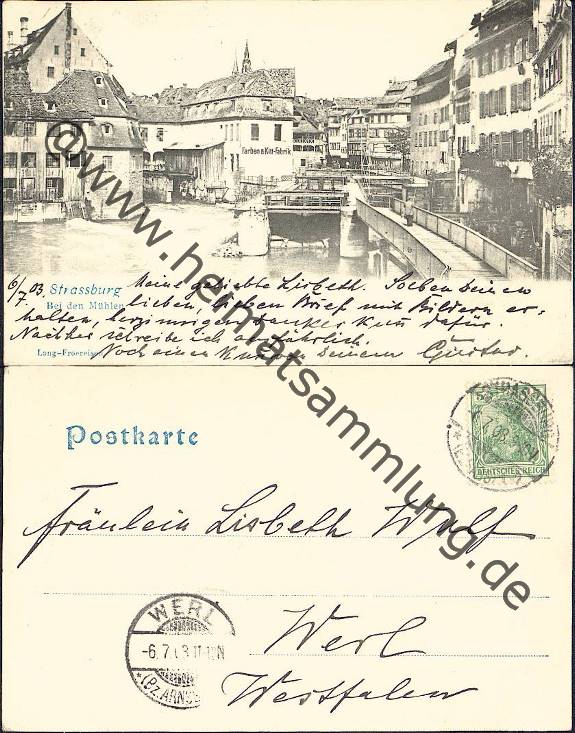 Farben u. Kitt-Fabrik
6/7. 03. Strassburg
Bei den Mühlen
Meine geliebte Lisbeth. Soeben Deinen
lieben, lieben Brief mit Bildern er-
halten, herzinnigen Kuss dafür.
Nachher schreibe ich ausführlich.
Noch einen Kuss Deinem Gustav.
www.heimatsammlung.de
Postkarte
DEUTSCHES REICH
Fräulein Lisbeth Wulf
WERL
-6.7.03.11-12N
*(BZ.ARNSB
Werl
Westfalen